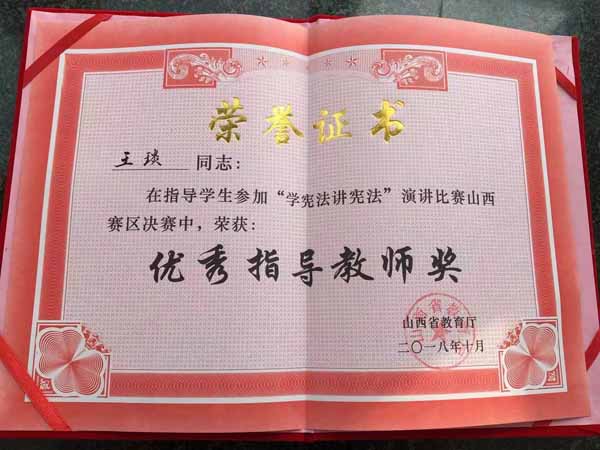 荣誉证书
王琰 同志：
在指导学生参加“学宪法讲宪法”演讲比赛山西
赛区决赛中，荣获：
优秀指导教师奖
山西省教育厅
二〇一八年十月